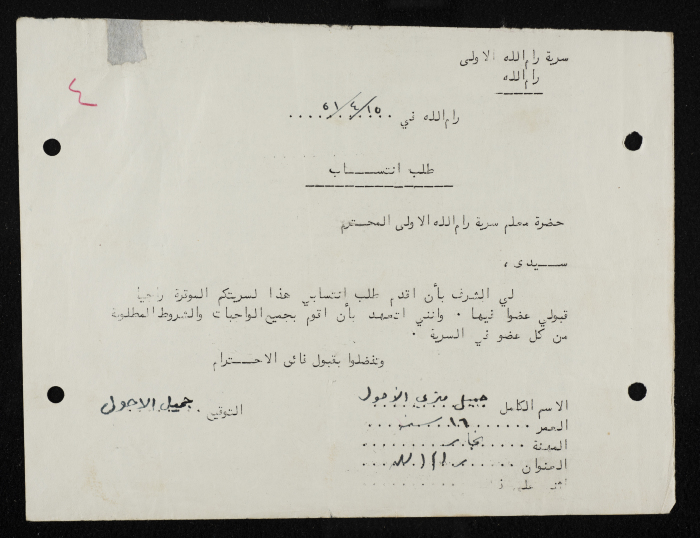 سرية رام الله الاولى
رام الله
٤
رام الله في ٥١/٤/١٥
طلب انتساب
حضرة معلم سرية رام الله الاولى المحترم
سيدى ،
لي الشرف بأن اقدم طلب انتسابي هذا لسريتكم الموقرة راجيا
قبولي عضوا فيها . وانني اتعهد بأن اقوم بجميع الواجبات والشروط المطلوبة
من كل عضو في السرية .
وتفضلوا بقبول فائق الاحترام
الاسم الكامل جميل متري الأجول
التوقيع جميل الاجول
العمر ١٦ سنة
المهنة نجار
العنوان رام الله